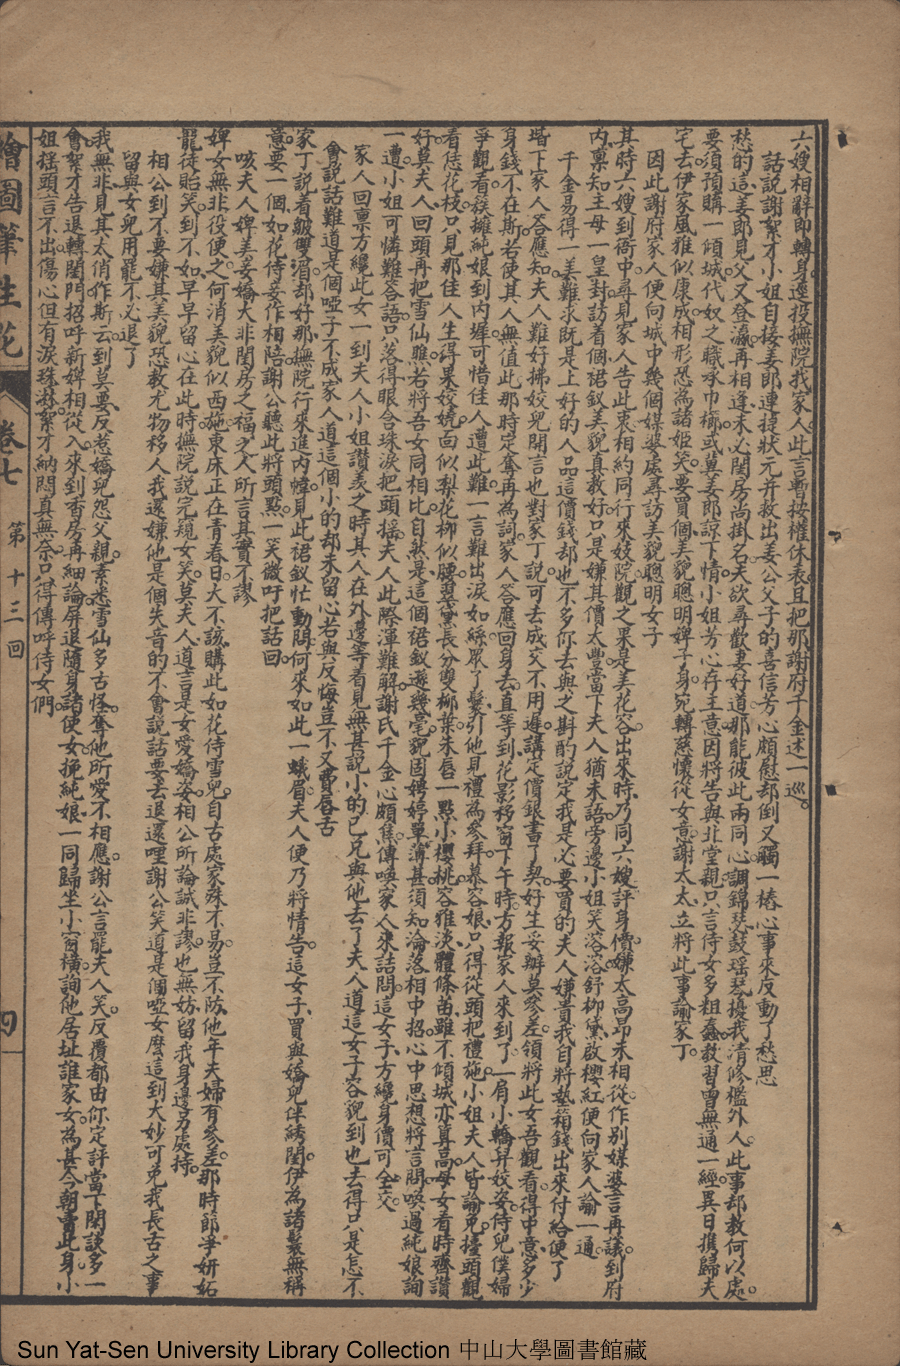 六嫂相辭即轉身。逕投撫院我家人。此言暫按權休表。且把那謝府千金述一巡。
話說謝絮才小姐自接姜郎連捷狀元并救出姜公父子的喜信芳心頗慰却倒又觸一樁心事來反動了愁思
愁的這姜郎見父又登瀛。再相逢未必閨房尚掛名。夫欲尋歡妻好道。那能彼此兩同心。調錦瑟鼓瑤琴。擾我清修檻外人。此事却教何以處。
要須預購一傾城。代奴之職承巾櫛。或冀姜郎諒下情。小姐芳心存主意。因將告與北堂親。只言侍女多粗蠢。教習曾無通一經。異日攜歸夫
宅去。伊家風雅似康成。相形恐為諸姬笑。要買個美貌聰明婢子身。宛轉慈懷從女意。謝太太立將此事諭家丁。
因此謝府家人便向城中幾個媒婆處尋訪美貌聰明女子
其時六嫂到衙中。尋見家人告此衷。相約同行來妓院。觀之果是美花容。出來時乃同六嫂評身價。嫌太高昂未相從。作別媒婆言再議。到府
內稟知主母一皇封。訪着個裙釵美貌真教好。只是嫌其價太豐。當下夫人猶未語。旁邊小姐笑溶溶。舒柳黛啟櫻紅。便向家人諭一通。
千金易得一美難求既是上好的人品這價錢却也不多你去與之斟酌說定我是必要買的夫人嫌貴我自將墊箱錢出來付給便了
堦下家人答應知。夫人難好拂姣兒。開言也對家丁說。可去成交不用遲。講定價銀書了契。好生妥辦莫參差。領將此女吾觀看。得中意多少
身錢不在斯。若使其人無值此。那時定奪再為詞。家人答應回身去。直等到花影移窗下午時。方報家人來到了。一肩小轎舁姣姿。侍兒僕婦
爭觀看。簇擁純娘到內墀。可惜佳人遭此難。一言難出淚如絲。眾了鬟引他見禮為參拜。慕容娘只得從頭把禮施。小姐夫人皆諭免。擡頭觀
看恁花枝。只見那佳人生得果姣嬈。面似梨花柳似腰。翠黛長分雙柳葉。朱唇一點小櫻桃。容雅淡體條苗。雖不傾城亦算高。母女看時齊讚
好。莫夫人回頭再把雪仙瞧。若將吾女同相比。自然是這個裙釵遜幾毫。貌固娉婷單薄甚。須知淪落相中招。心中思想將言問。喚過純娘詢
一遭。小姐可憐難答語。只落得眼含珠淚把頭搖。夫人此際渾難解。謝氏千金心頗焦。傳喚家人來詰問。這女子方纔身價可全交。
家人回稟方纔此女一到夫人小姐讚美之時其人在外邊等看見無甚說小的已兄與他去了夫人道這女子容貌到也去得只是怎不
會說話難道是個啞子不成家人道這個小的却未留心若與反悔豈不又費唇舌
家丁說着皺雙眉。却好那撫院行來進內幃。見此裙釵忙動問。何來如此一蛾眉。夫人便乃將情告。這女子買與嬌兒伴綉閨。伊為諸鬟無稱
意。要一個如花侍妾作相陪。謝公聽此將頭點。一笑微吁把話回。
咳夫人婢美妾嬌大非閨房之福之人所言其實不謬
婢女無非役使之。何消美貌似西施。東床正在青春日。大不該購此如花侍雪兒。自古處家殊不易。豈不防他年夫婦有參差。那時節爭妍妬
寵徒貽笑。到不如早早留心在此時。撫院說完窺女笑。莫夫人道言是女愛嬌姿。相公所論誠非謬。也無妨留我身邊另處持。
相公到不要嫌其美貌恐教尤物移人我還嫌他是個失音的不會說話要去退還哩謝公笑道是個啞女麼這到大妙可免我長舌之事
留與女兒用罷不必退了
我無非見其太俏作斯云。到莫要反惹嬌兒怨父親。素悉雪仙多古怪。奪他所愛不相應。謝公言罷夫人笑。反覆都由你定評。當下閑談多一
會。絮才告退轉閨門。招呼新婢相從入。來到香房再細論。屏退隨身諸使女。挽純娘一同歸坐小窗橫。詢他居址誰家女。為甚今朝賣此身。小
姐搖頭言不出。傷心但有淚珠淋。絮才納悶真無奈。只得傳呼侍女們。
繪圖筆生花 卷七 第十三回 四
Sun Yat-Sen University Library Collection 中山大學圖書館藏